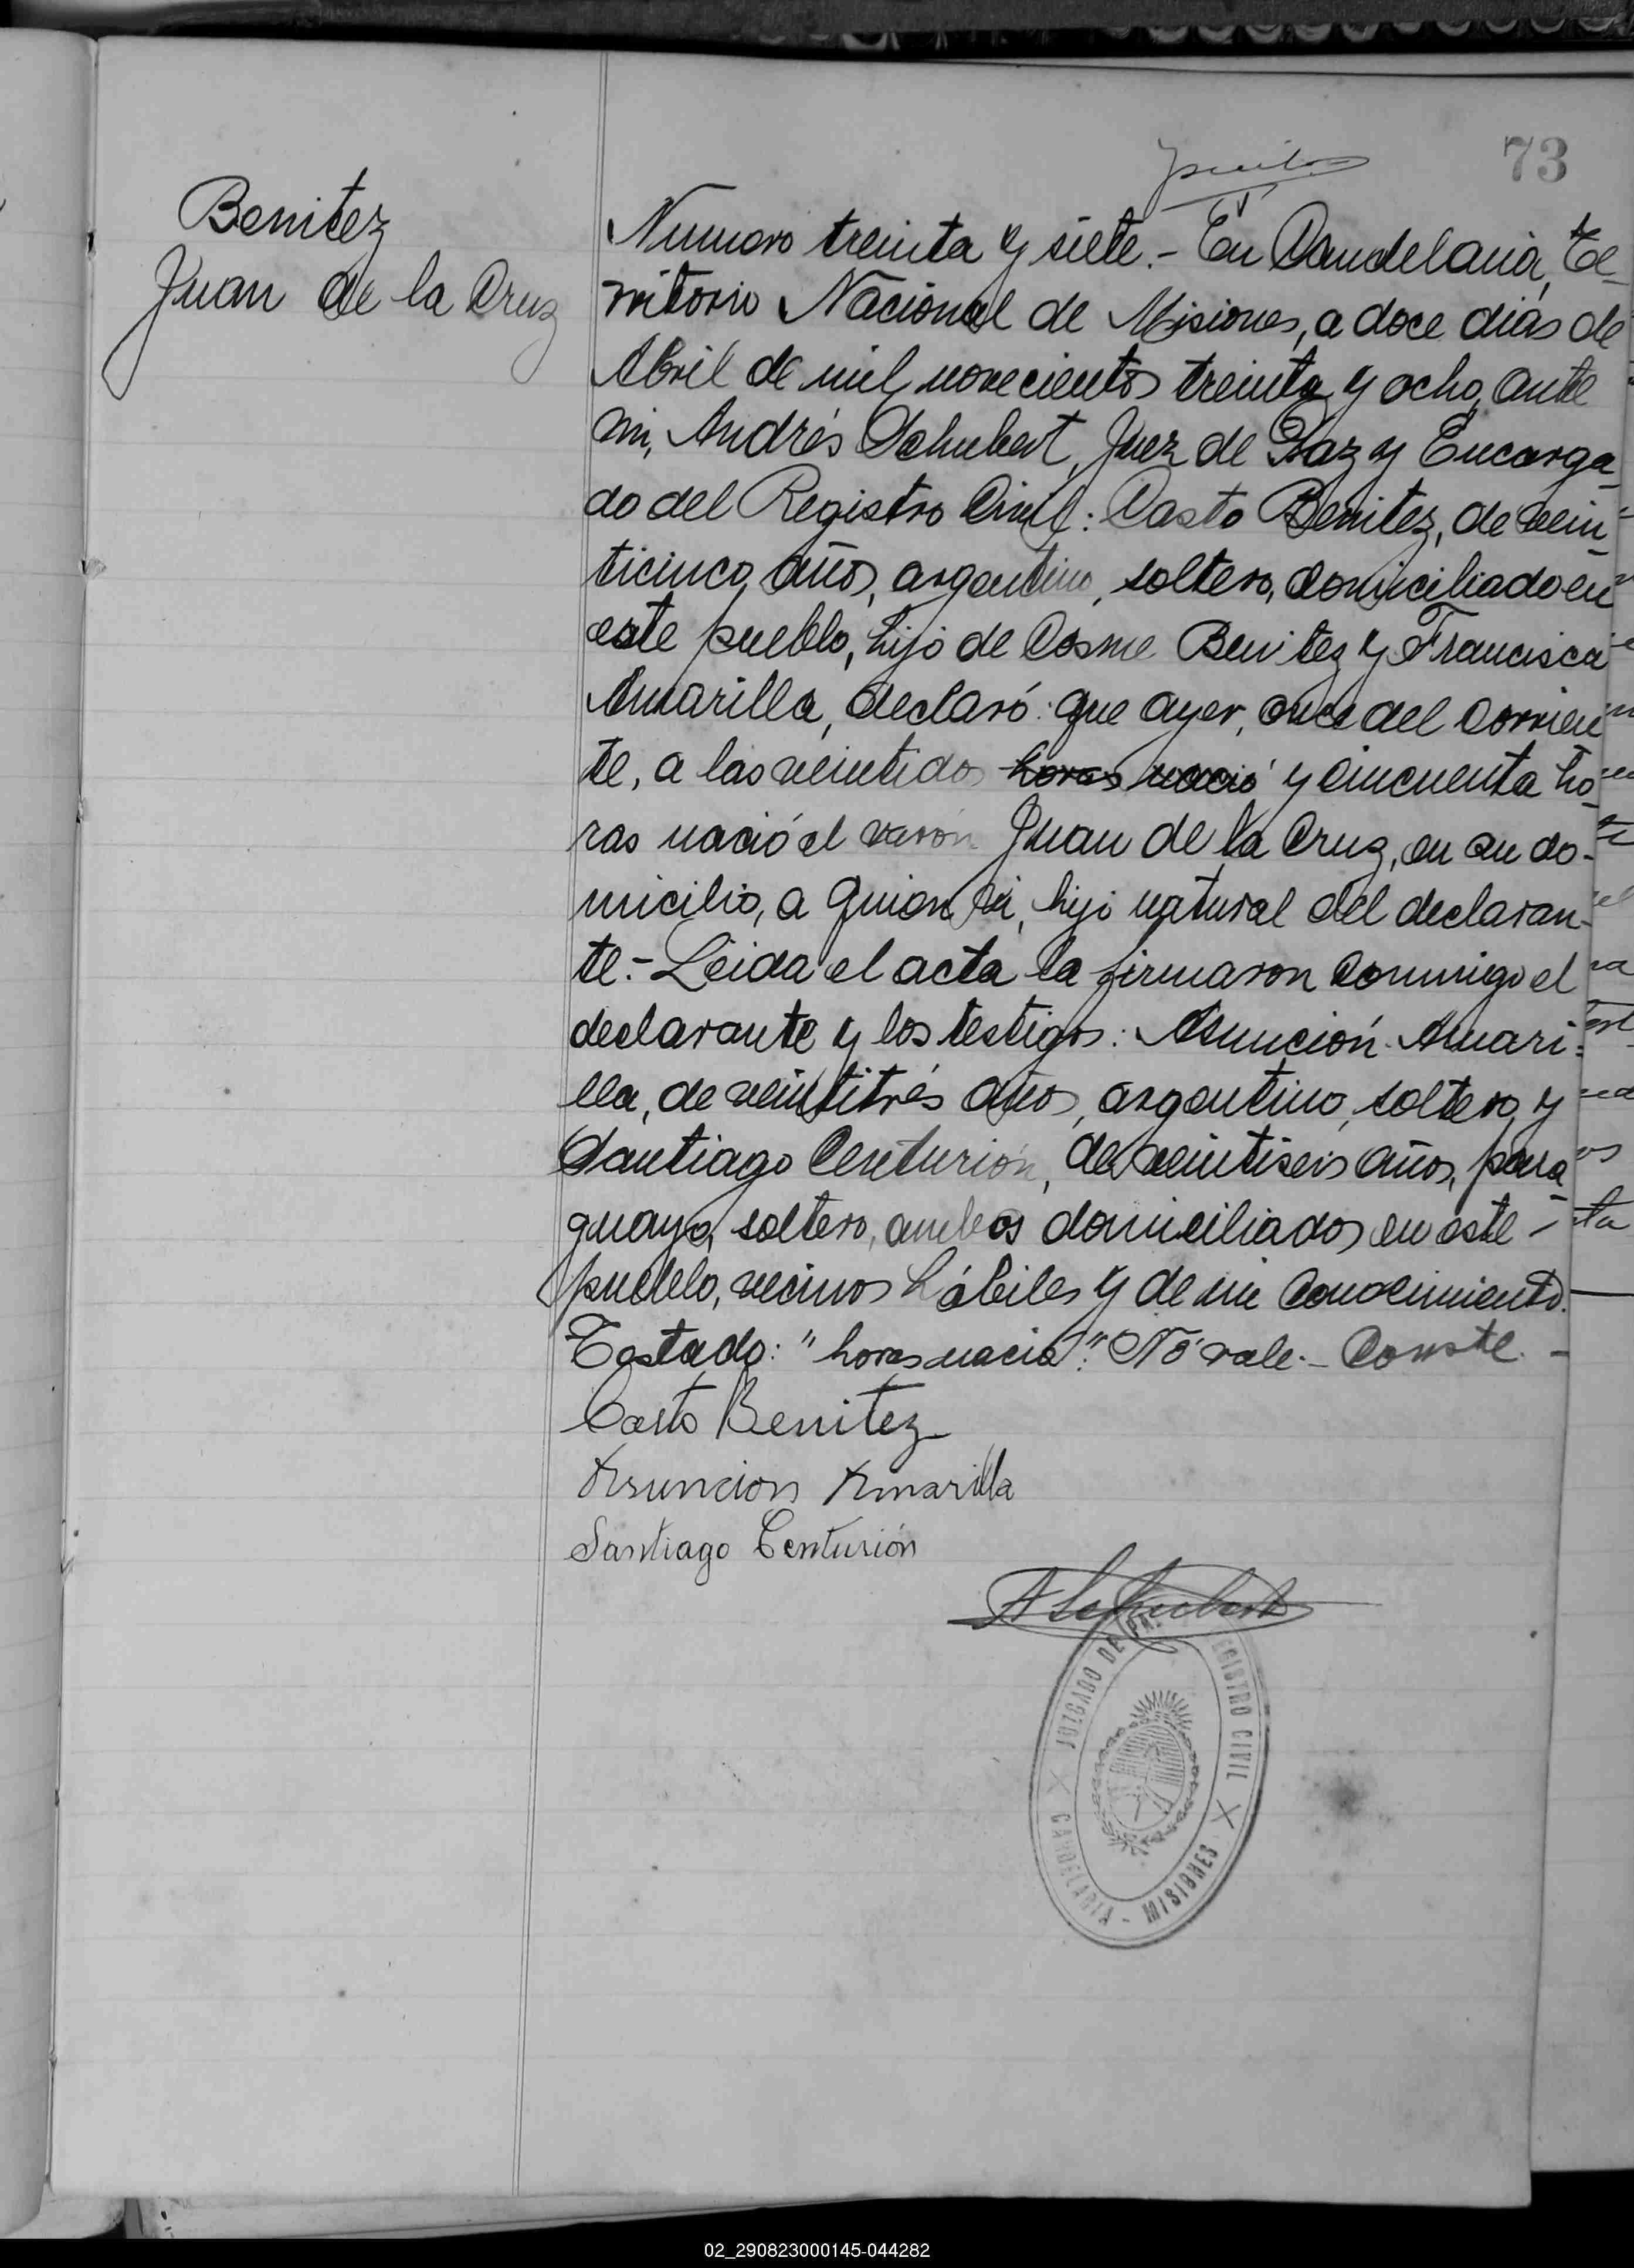 73
Benitez
Juan de la Cruz
Numero treinta y siete.- En Candelaria, Te-
rritorio Nacional de Misiones, a doce dias de
Abril de mil novecientos treinta y ocho, ante
mi, Andrés Schubert, Juez de Paz y Encarga-
do del Registro Civil: Casto Benitez, de vein-
ticinco años, argentino, soltero, domiciliado en
este pueblo, hijo de Cosme Benitez y Francisca
Amarilla, declaró: que ayer, once del corrien-
te, a las veintidos horas nació y cincuenta ho-
ras nació el varón Juan de la Cruz, en su do-
micilio, a quien vi, hijo natural del declaran-
te.- Leida el acta la firmaron conmigo el
declarante y los testigos: Asunción Amari-
lla, de veintitrés años, argentino, soltero, y
Santiago Centurión, de veintiseis años, para-
guayo, soltero, ambos domiciliados en este -
pueblo, vecinos hábiles y de mi conocimiento.
Testado: "horas nació": No vale.- Conste. -
Casto Benitez
Asuncion Amarilla
Santiago Centurión
A Schubert
JUZGADO DE PAZ
REGISTRO CIVIL
CANDELARIA - MISIONES
02_290823000145-044282